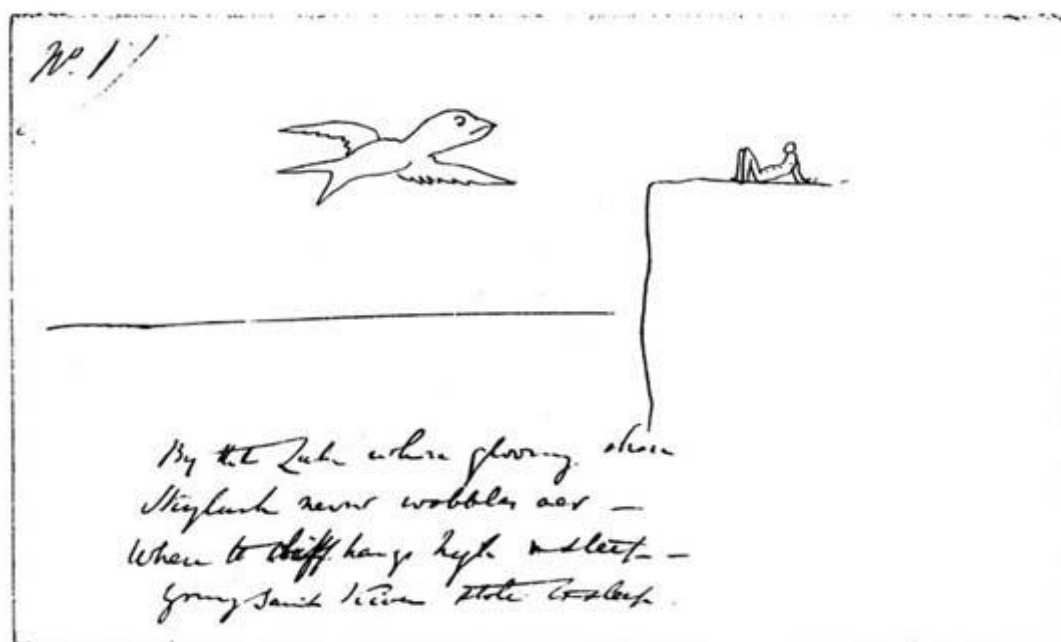 No. 1
By that Lake whose gloomy shore
Skylark never wobbles oer —
Where te cliff hangs high & steep —
Young Saint Kevin stole to sleep.